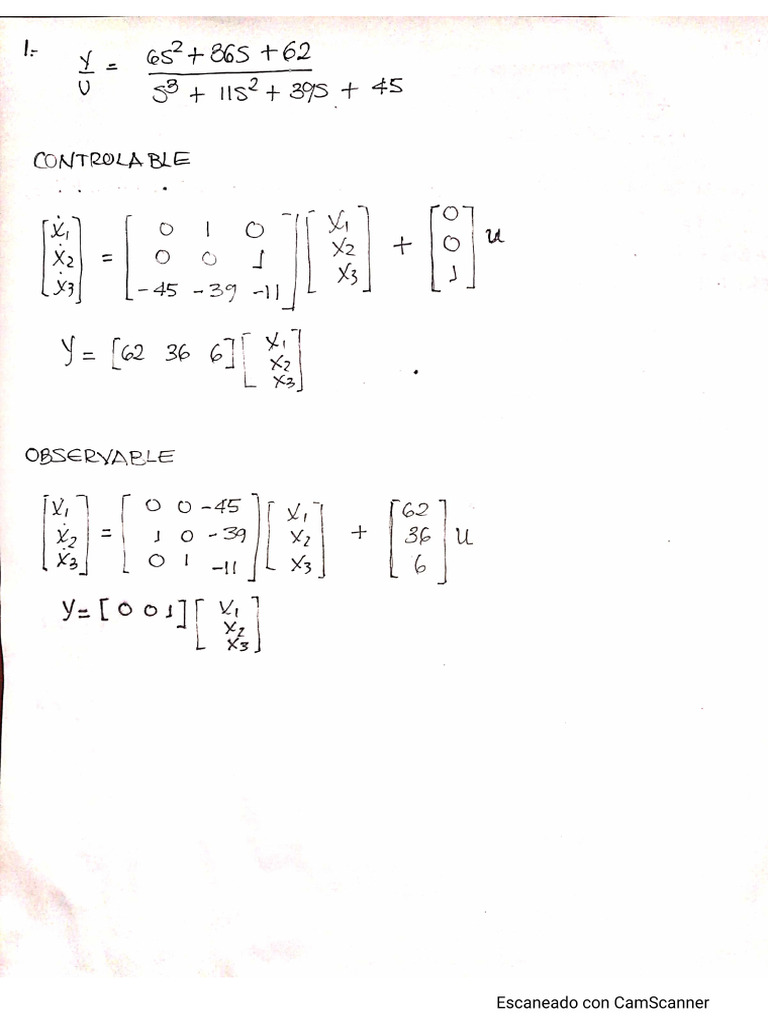 1.- Y/U = (6S² + 36S + 62) / (S³ + 11S² + 39S + 45)
CONTROLABLE
[ẋ1; ẋ2; ẋ3] = [0 1 0; 0 0 1; -45 -39 -11] [x1; x2; x3] + [0; 0; 1] u
Y = [62 36 6] [x1; x2; x3]
OBSERVABLE
[ẋ1; ẋ2; ẋ3] = [0 0 -45; 1 0 -39; 0 1 -11] [x1; x2; x3] + [62; 36; 6] u
Y = [0 0 1] [x1; x2; x3]
Escaneado con CamScanner